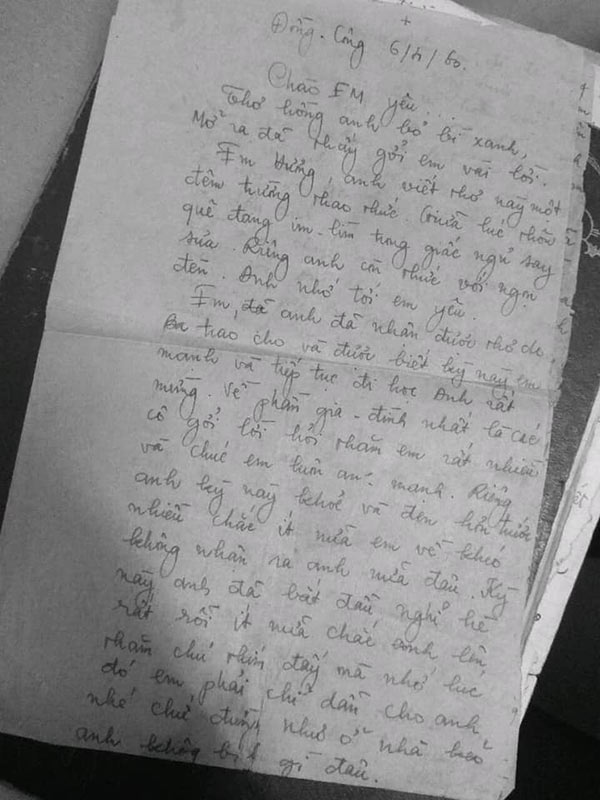 +
Đồng. Công 6/4/60.
Chào EM yêu...
Thơ hồng anh bỏ bì xanh,
Mở ra đã thấy gởi em vài lời.
Em Hương, anh viết thơ này một
đêm trường thao thức. Giữa lúc thôn
quê đang im-lìm trong giấc ngủ say
sưa. Riêng anh còn thức với ngọn
đèn. Anh nhớ tới em yêu.
Em, đã anh đã nhận được thơ do
Ba trao cho và được biết kỳ này em
mạnh và tiếp tục đi học Anh rất
mừng. Về phần gia-đình nhất là các
cô gởi lời hỏi thăm em rất nhiều
và chúc em luôn an- mạnh. Riêng
anh kỳ này khoẻ và đen hơn trước
nhiều chắc ít nữa em về khéo
không nhận ra anh nữa đâu. Kỳ
này anh đã bắt đầu nghỉ hè
rất rồi ít nữa chắc anh lên
thăm chú thím đấy mà nhớ lúc
đó em phải chỉ dẫn cho anh
nhé chứ đừng như ở nhà kẻo
anh không biết gì đâu.